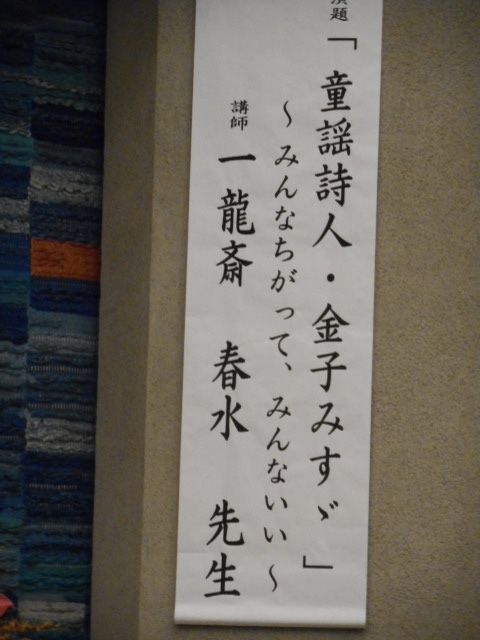 演題「童謡詩人・金子みすゞ」
～みんなちがって、みんないい～
講師 一龍斎 春水 先生